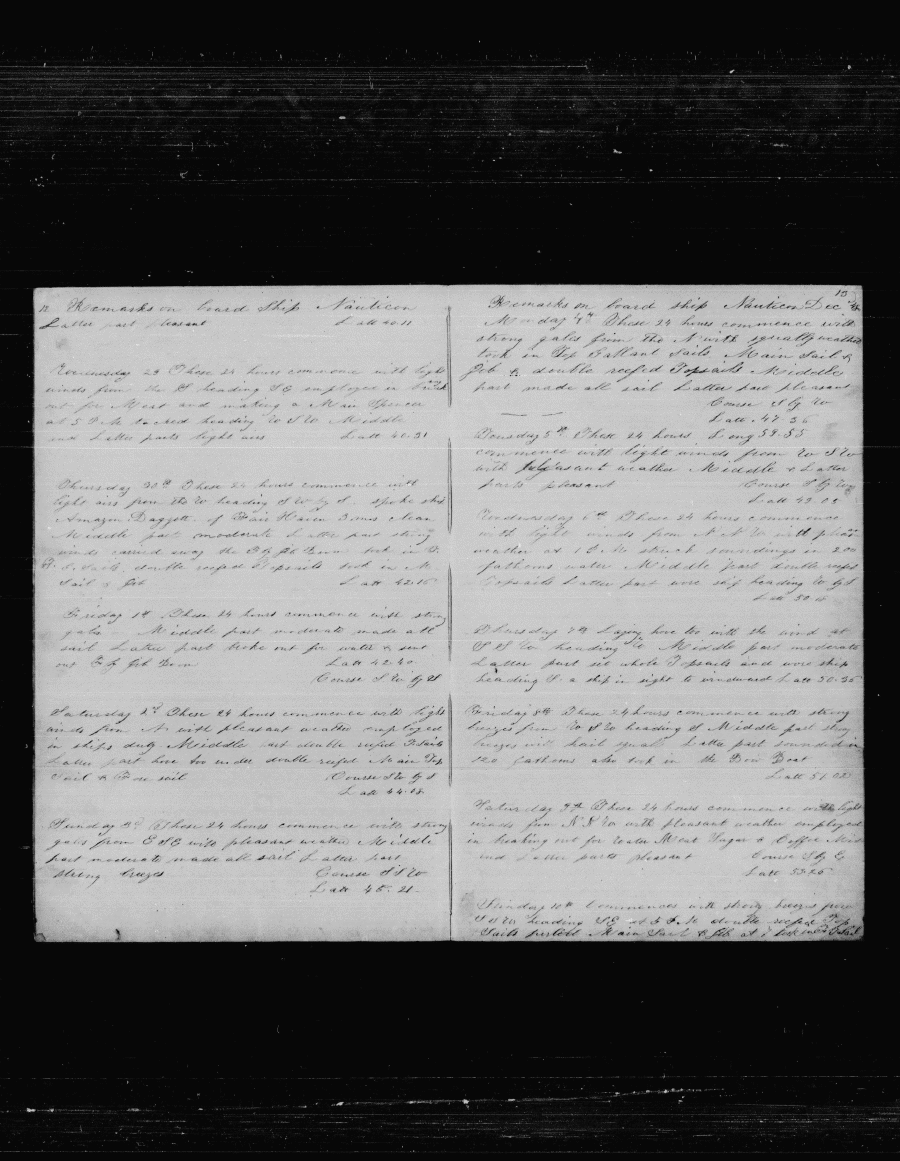 12 Remarks on board Ship Nauticon
Latter part pleasant Latt 40.11
Wednesday 29 These 24 hours commence with light
winds from the S heading SE employed in
out for Meat and making a Main Spencer
at 5 P.M tacked heading W S W Middle
and Latter parts light airs Latt 40.31
Thursday 30th These 24 hours commence with
light airs from the W heading S W by S. spoke ship
Amazon. Daggett. of Fair Haven 3 mos clean
Middle part moderate Latter part strong
winds carried away the F J Jib Boom took in T.
G. Sails, double reefed Topsails took in M.
Sail & Jib Latt 42.15
Friday 1st These 24 hours commence with strong
gales Middle part moderate made all
sail Latter part broke out for water & sent
out F J Jib Boom Latt 42.40
Course S W by S
Saturday 2d These 24 hours commence with light
winds from N with pleasant weather employed
in ships duty Middle part double reefed T.sails
Latter part hove too under double reefed Main Top
Sail & Fore sail Course S W by S
Latt 44.08
Sunday 3d These 24 hours commence with strong
gales from E S E with pleasant weather Middle
part moderate made all sail Latter part
strong breezes Course S S W
Latt 45.21
13
Remarks on board ship Nauticon Dec 4th
Monday 4th These 24 hours commence with
strong gales from the N with squally weather
took in Top Gallant Sails Main Sail &
Jib & double reefed Topsails Middle
part made all sail Latter part pleasant
Course S by W
Latt. 47.36
Tuesday 5th These 24 hours Long 59.55
commence with light winds from W S W
with pleasant weather Middle & Latter
parts pleasant Course S by W
Latt 49.02
Wednesday 6th These 24 hours commence
with light winds from N N W with pleas
weather at 1 P.M. struck soundings in 200
fathoms water Middle part double reefs
Topsails Latter part wore ship heading W by S
Latt 50
Thursday 7th Laying hove too with the wind at
S S W heading W Middle part moderate
Latter part set whole Topsails and wore ship
heading S. a ship in sight to windward Latt 50.35
Friday 8th These 24 hours commence with strong
breezes from W S W heading S Middle part strong
breezes with hail squalls Latter part sounded in
120 fathoms also took in the Bow Boat
Latt 51.02
Saturday 9th These 24 hours commence with light
winds from N N W with pleasant weather employed
in breaking out for Water Meat Sugar & Coffee Mid
and Latter parts pleasant Course S by E
Latt 53.25
Sunday 10th Commences with strong breezes from
heading SE at 5 P.M double reefed Top
Sails furled Main Sail & Jib at 7 took in